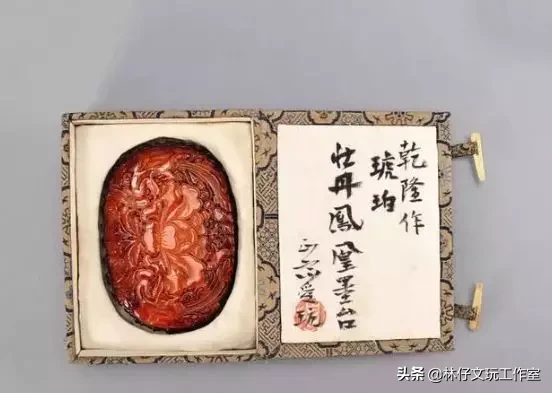 乾隆作
琥珀
牡丹鳳凰墨台
头条@林仔文玩工作室